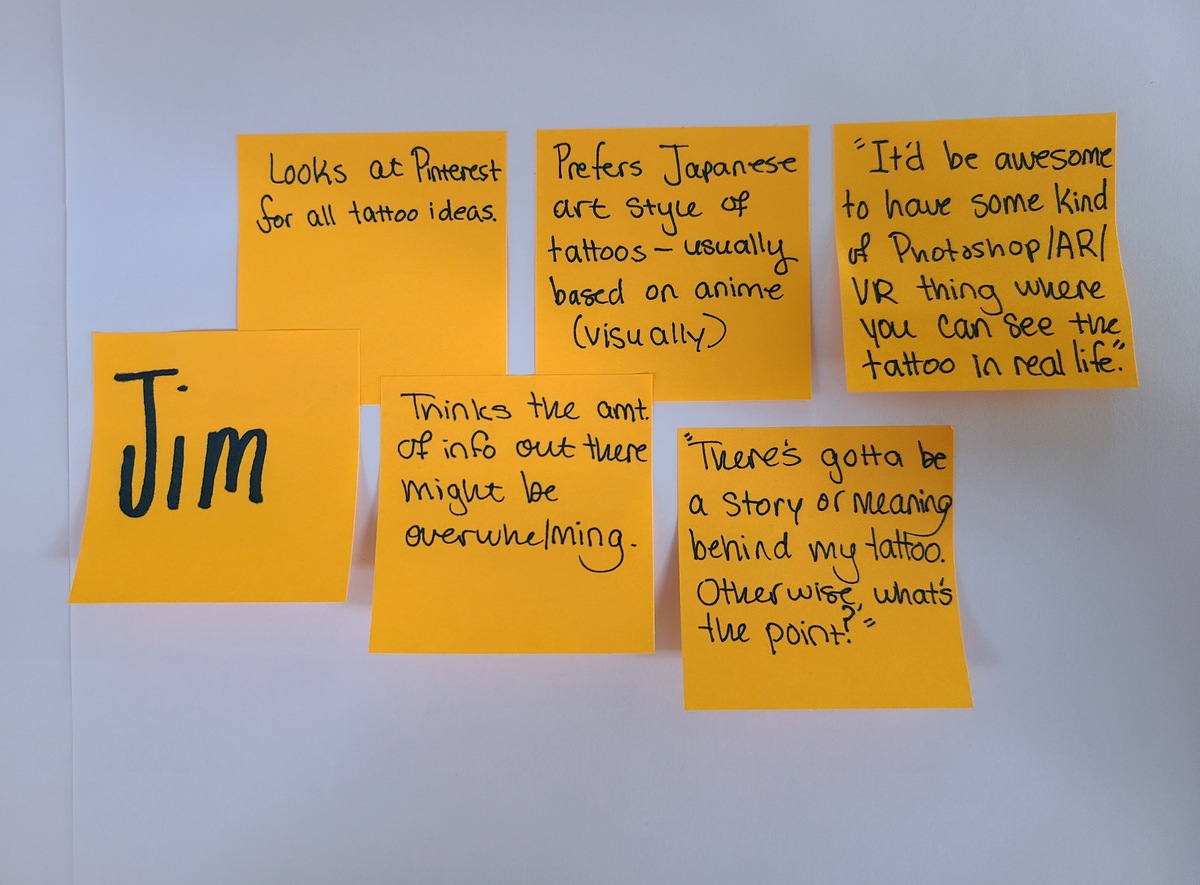 Looks at Pinterest
for all tattoo ideas.
Prefers Japanese
art style of
tattoos – usually
based on anime
(visually)
"It'd be awesome
to have some kind
of Photoshop/AR/
VR thing where
you can see the
tattoo in real life."
Jim
Thinks the amt.
of info out there
might be
overwhelming.
"There's gotta be
a story or meaning
behind my tattoo.
Otherwise, what's
the point?"